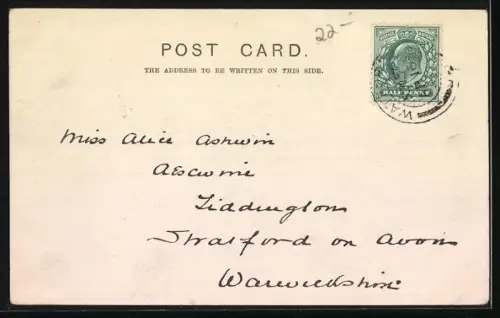 22-
POST CARD.
THE ADDRESS TO BE WRITTEN ON THIS SIDE.
HALFPENNY
Miss Alice Ashwin
Aescwine
Tiddington
Stratford on Avon
Warwickshire